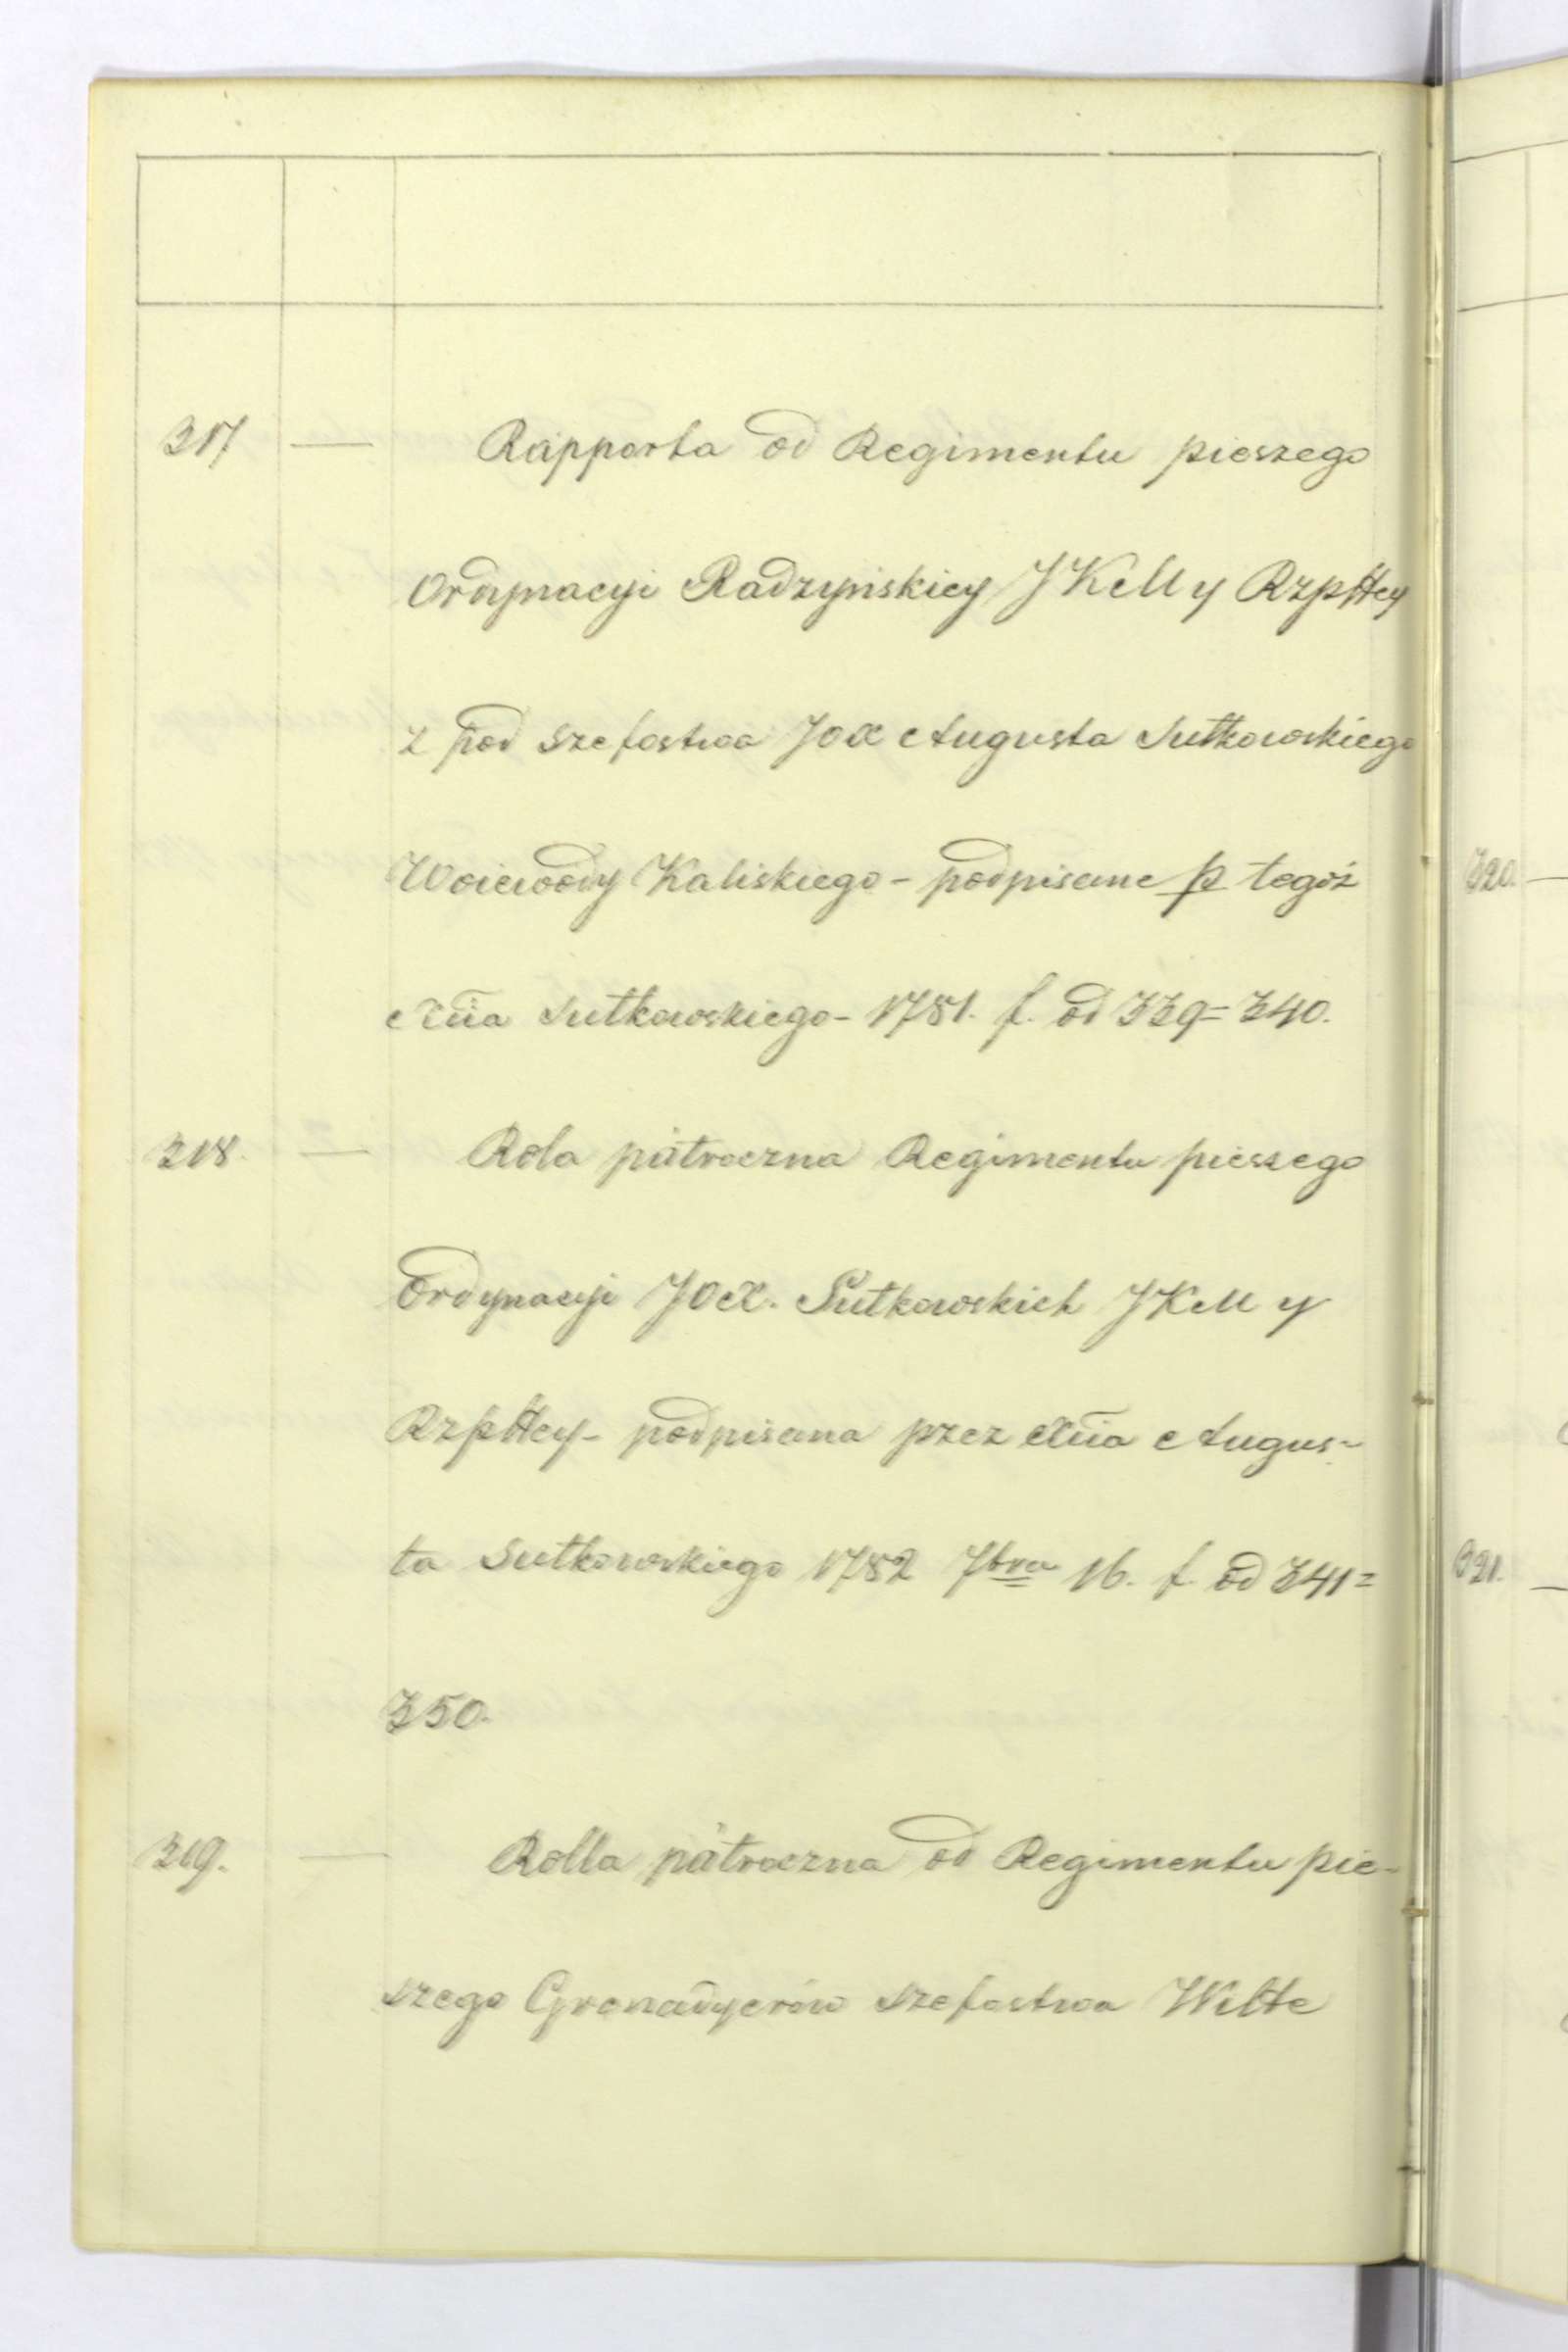 317 — Rapporta od Regimentu pieszego
Ordynacyi Radzyńskiey JKM y Rzpttey
z pod szefostwa JOX Augusta Sułkowskiego
Woiewody Kaliskiego - podpisane p tegoż
Xcia Sułkowskiego - 1781. f. od 339 = 340.
318. — Rola półroczna Regimentu pieszego
Ordynacyi JOX. Sułkowskich JKM y
Rzpttey - podpisana przez Xcia Augus-
ta Sułkowskiego 1782 7bra 16. f. od 341 =
350.
319. — Rolla półroczna od Regimentu pie-
szego Grenadyerów szefostwa Witte
320. —
321. —